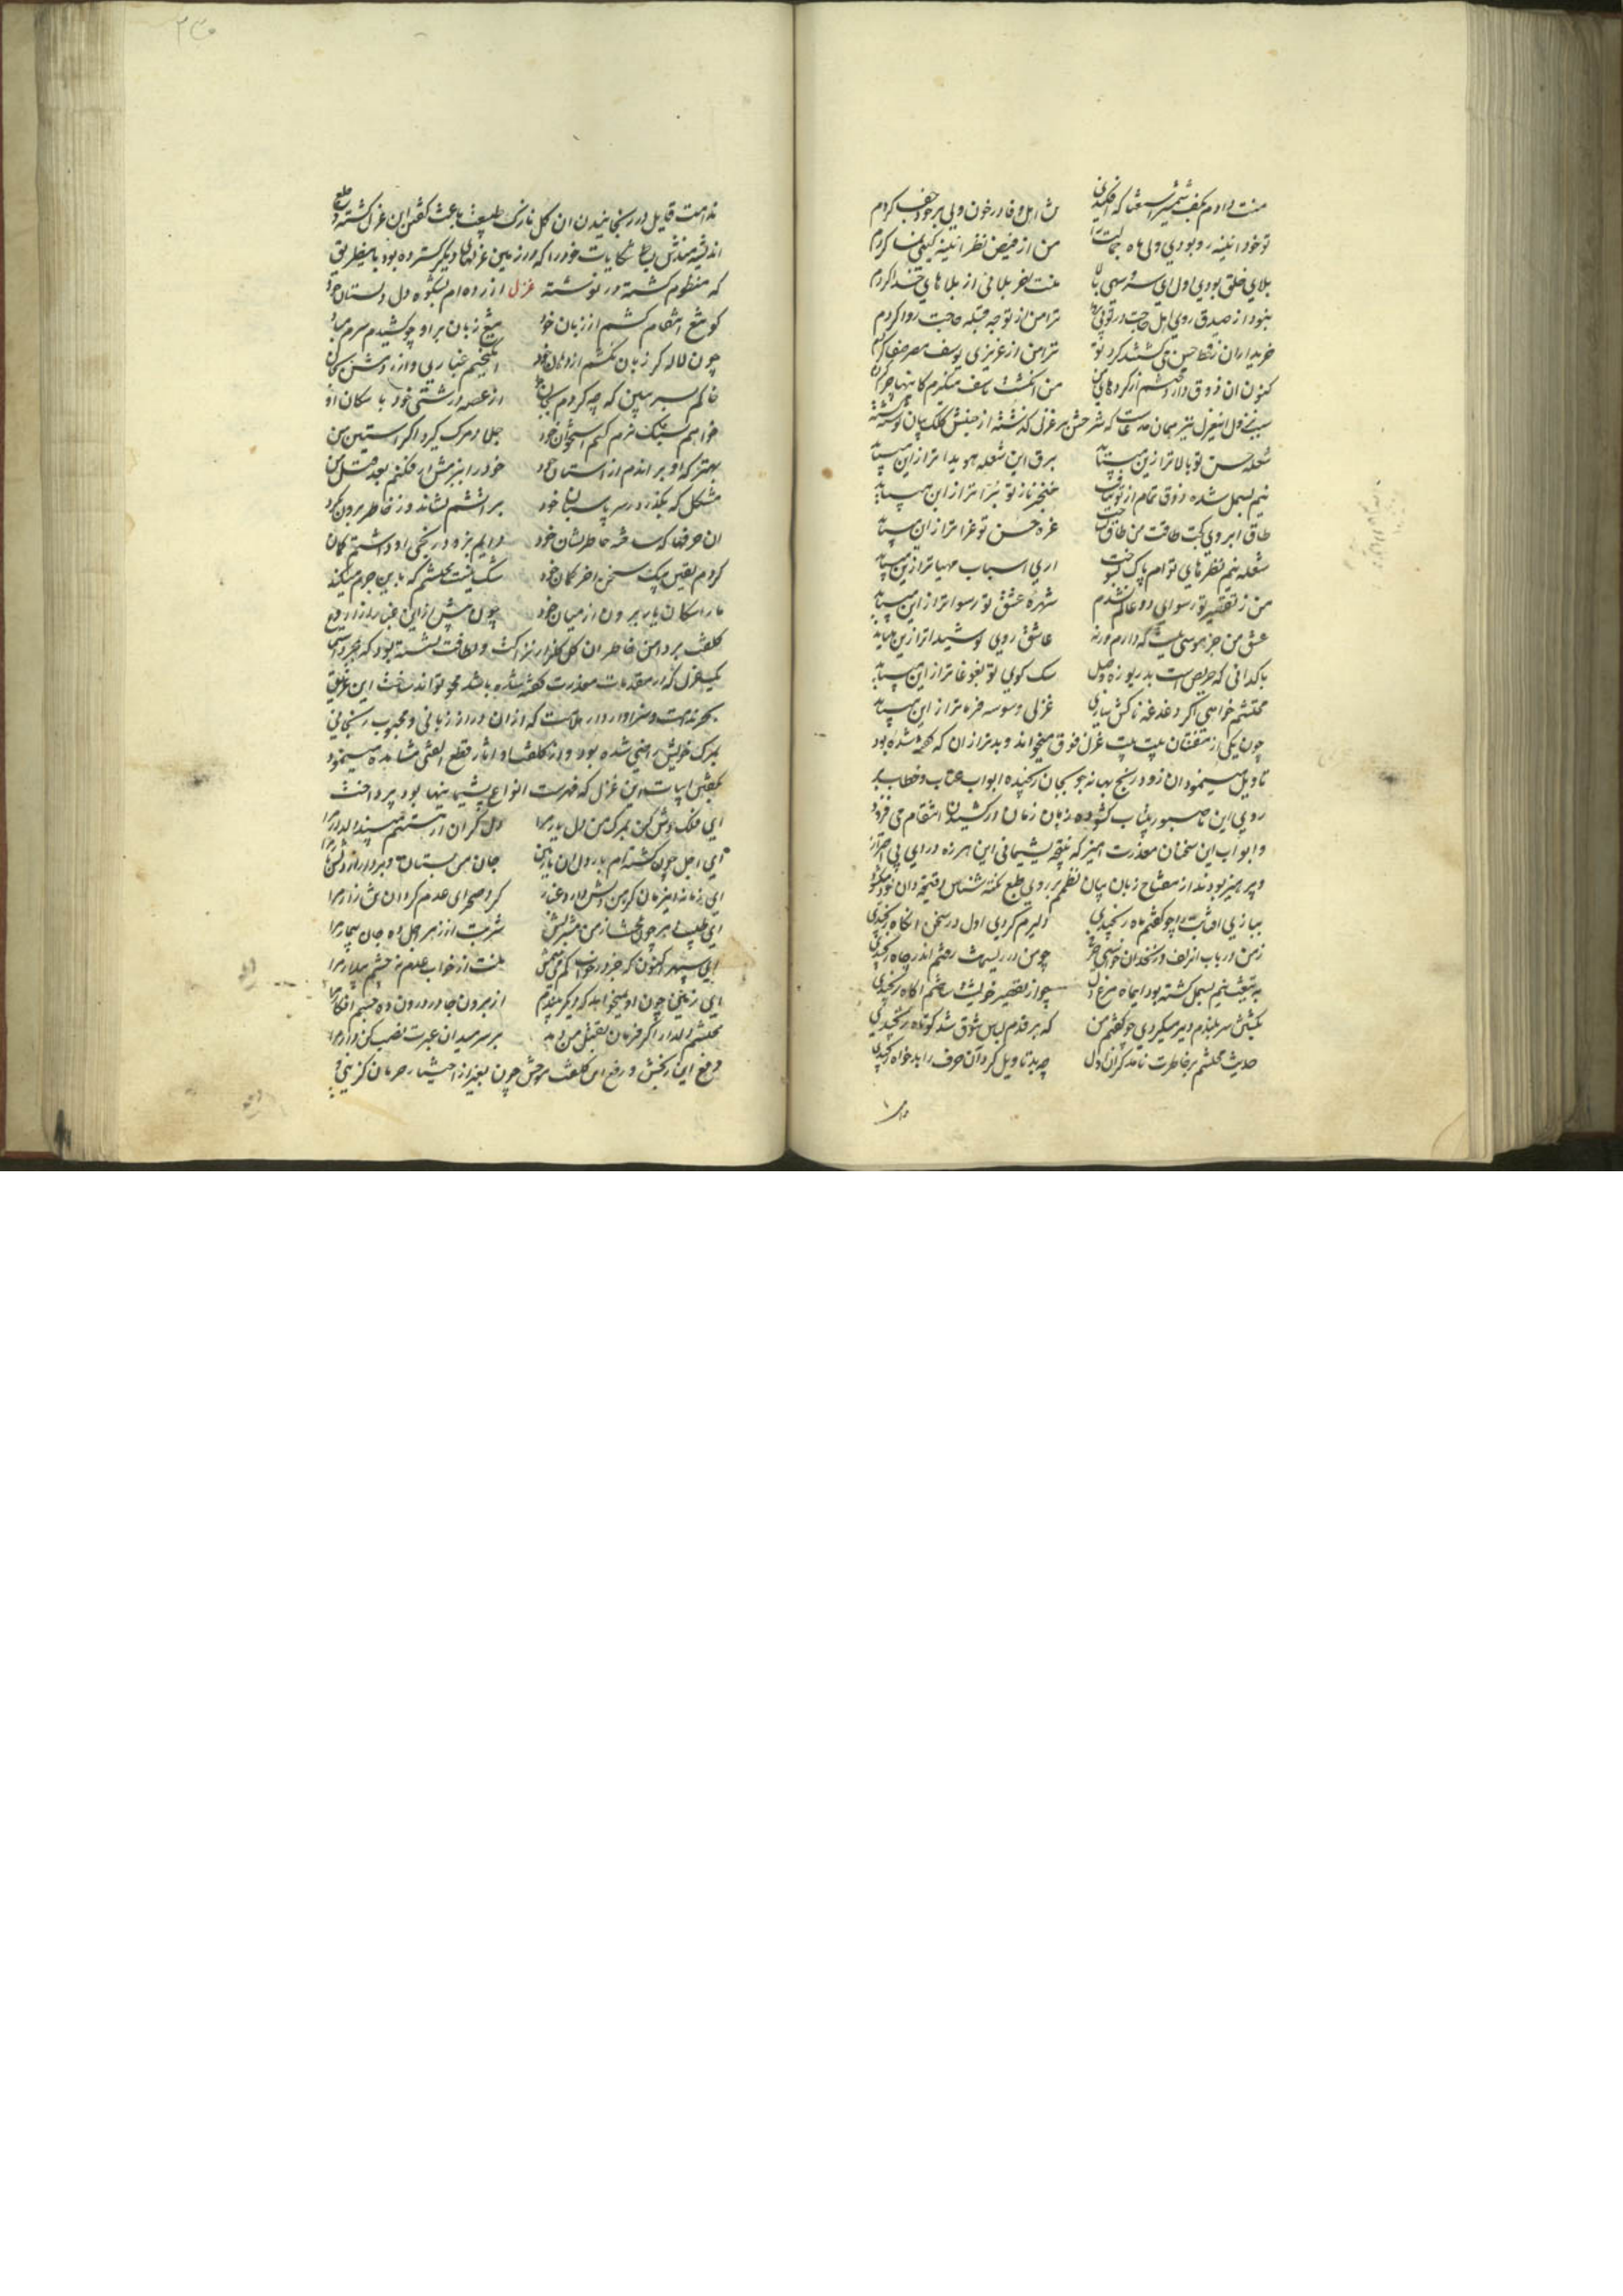 منت دادم بکف شمشیر استغنا که افکندی ش اهل وفا در خون ولی بر خود جفا کردم
تو خود آئینه رو بودی ولی ماه جمالت را من از فیض نظر آئینه گیتی نما کردم
بلای خلق بودی اول ای سرو سهی بالا منت آخر بلائی از بلاهای خدا کردم
نبود از صدق روی اهل حاجت در تو ترا من از توجه قبله حاجت روا کردم
خریداران نقط حسن می گشتند گرد تو ترا من از عزیزی یوسف مصر صفا کردم
کنون آن ذوق دارد محتشم از کرده های من انگشت تاسف میگزم کاینها چرا کردم
سبب نزول این غزل نیز همان مدعاست که شرحش بر غزل گذشته از جنبش کلک بیان نوشته
شعله حسن تو بالاتر ازین میباید برق این شعله هویداتر ازین میباید
نیم بسمل شده ذوق تمام از تو نیافت خنجر ناز تو براتر ازین میباید
طاق ابروی کجت طاقت من طاق غره حسن تو غراتر ازان میباید
شعله نیم نظرهای توام پاک بسوخت آری اسباب مهیاتر ازین میباید
من ز تقصیر تو رسوای دو عالم نشدم شهره عشق تو رسواتر ازین میباید
عشق من جز هوسی نیست که دارم ورنه عاشق روی تو شیداتر ازین میباید
با گدائی که حریص است بدریوزه وصل سک کوی تو بغوغاتر ازین میباید
محتشم خواهی اگر دغدغه ناکش سازی غزلی وسوسه فرماتر از این میباید
چون یکی از متفننان بیت بیت غزل فوق میخواند و بدتر از آن که گفته شده بود
تاویل مینمود آن زود رنج بهانه جو بجان رنجیده ابواب عتاب و خطاب بر
روی این ناصبور بیتاب گشوده زبان زمان در کشیدن انتقام می فزود
و ابواب این سخنان معذرت آمیز که نتیجه پشیمانی این هرزه درای بی احتراز
و پرهیز بودند از مفتاح زبان بیان نظم بر روی طبع نکته شناس دقیقه دان خود میگشود
ببازی آفتابت را چو گفتم ماه رنجیدی دلیرم کردی اول در سخن آنگاه رنجیدی
ز من در باب آن زلف و زنخدان خواستی حرفی چو من در ریسمانت رفتم اندر چاه رنجیدی
به تیغت نیم بسمل گشته بود ای ماه مرغ دل چو از تقصیر خویشت ساختم آگاه رنجیدی
بکشتن سر بلندم دیر میکردی چو گفتم من که بر قدم لباس شوق شد کوتاه رنجیدی
حدیث محتشم بر خاطرت نامد گران اول چه بد تاویل کرد آن حرف را بدخواه رنجیدی
ندامت قایل در رنجانیدن آن گل نازک طبیعت باعث گفتن این غزل گشته
اندیشه مندش بساط شکایات خود را که در زمین غزلهای دیگر گسترده بود باین طریق
که منظوم گشته در نوشته غزل آزرده ام بشکوه دل دلستان خود
کو تیغ انتقام کشم از زبان خود تیغ زبان بر او چو کشیدم سرم مباد
چون لاله گر زبان نکشم از دهان خود انگیختم غباری و آزردمش بجان
خاکم بسر ببین که چه کردم بجان خود از غصه درشتی خود با سکان او
خواهم بسنگ نرم کنم استخوان خود جلاد مرگ گیرد اگر آستین من
بهتر که او براندم از آستان خود خود را بزیرش ار فکنم بعد قتل من
مشکل که بگذرد ز سر پاسبان خود بر آتشم نشاند و ز خاطر برون نکرد
آن حرفها که ساخته خاطر نشان خود دایم بزود رنجی او داشتم گمان
کردم یقین بیک سخن آخر گمان خود شک نیست محتشم که باین جرم میکند
ما را سکان یار برون از میان خود چون پیش ازین غبار آزار و رفع
کلفت بر دامن خاطر آن گل گلزار نزاکت و لطافت نشسته بود که بمجرد
یک غزل که از مقدمات معذرت گفته شده باشد محو تواند ساخت این غریق
بحر ندامت و سزاوار دار ملامت که از آن دراز زبانی و محبوب رنجانی
بمرگ خویش راضی شده بود و از کلفتها و آثار قطع الفتی مشاهده مینمود
بگفتن ابیات این غزل که فهرست انواع پشیمانیها بود پرداخت
ای فلک خوش کن بمرگ من دل یار مرا دل گران از هستیم مپسند دلدار مرا
ای اجل چون گشته ام بار دل آن نازنین جان من بستان و بردار از دلش بار مرا
ای زمانه این زمان کز من دلش دارد غبار گرد صحرای عدم گردان تن زار مرا
ای طبیب دهر چون تلخست از من مشربش شربت از زهر اجل ده جان بیمار مرا
ای سپهر اکنون که جز در خواب کم می بینمش منت از خواب عدم نه چشم بیدار مرا
ای زمین چون او نمیخواهد که دیگر بیندم از برون جا در درون ده جسم افکار مرا
محتشم دلدار اگر فرمان بقتل من دهد بر سر میدان عبرت نصب کن دار مرا
رفع این رنجش و رفع این کلفت موحش چون بغیر از اختیار حرمان گزینی و